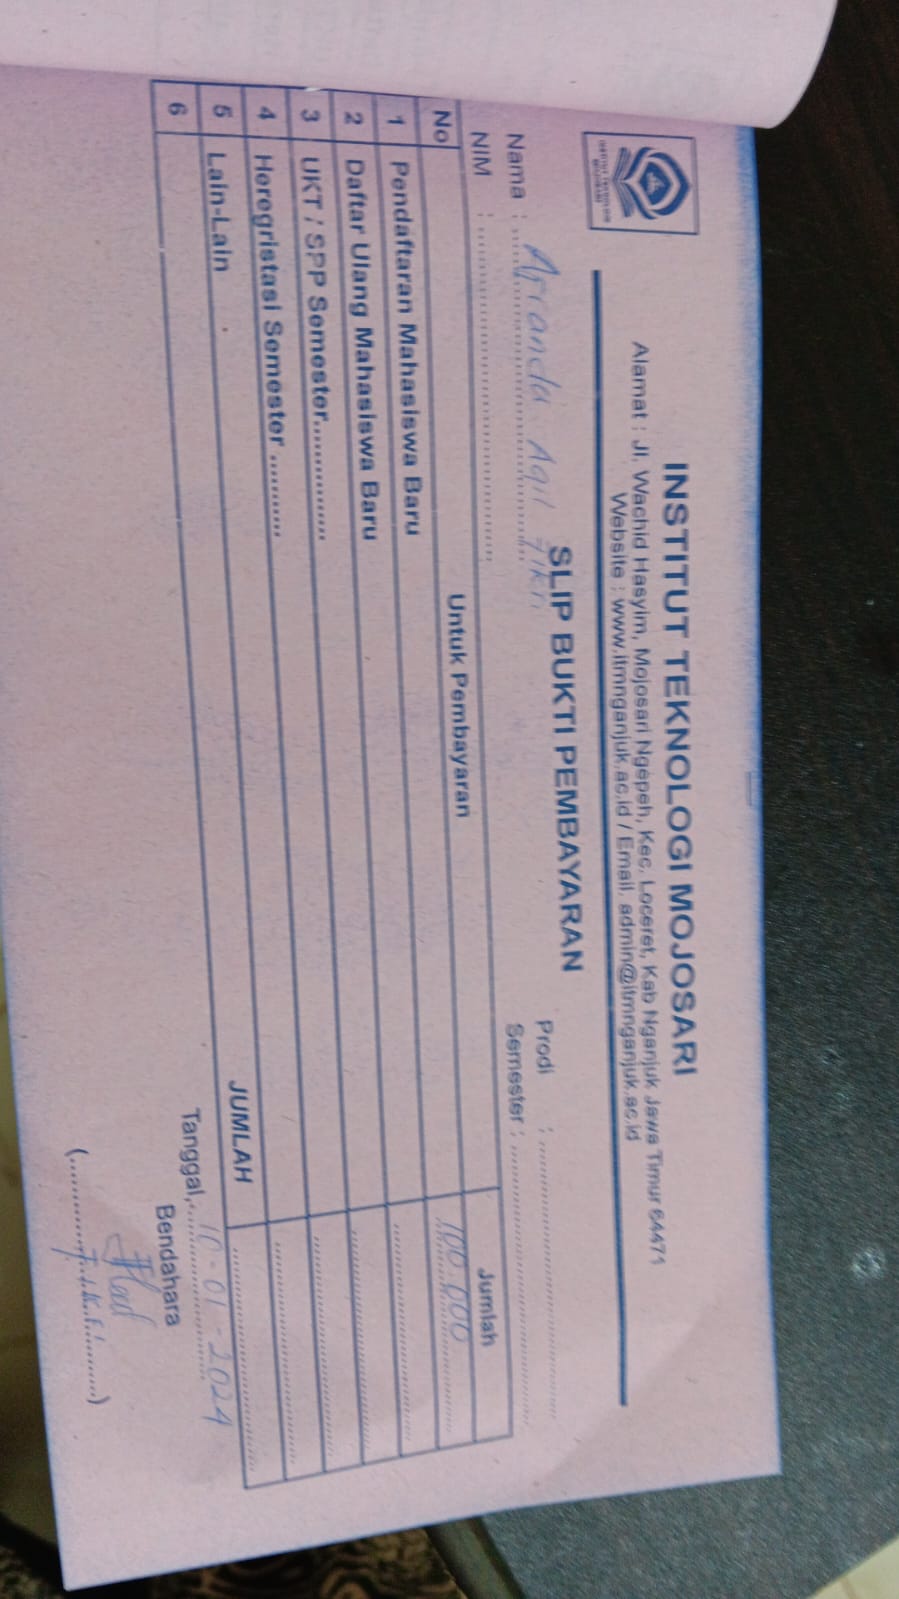 INSTITUT TEKNOLOGI MOJOSARI
Alamat : Jl. Wachid Hasyim, Mojosari Ngepeh, Kec. Loceret, Kab Nganjuk Jawa Timur 64471
Website : www.itmnganjuk.ac.id / Email. admin@itmnganjuk.ac.id
SLIP BUKTI PEMBAYARAN
Nama : Arianda Aqil Fikri
Prodi :
NIM :
Semester :
No Untuk Pembayaran Jumlah
1 Pendaftaran Mahasiswa Baru 100.000
2 Daftar Ulang Mahasiswa Baru
3 UKT / SPP Semester..............
4 Heregristasi Semester ...........
5 Lain-Lain
6
JUMLAH
Tanggal, 10-01-2024
Bendahara